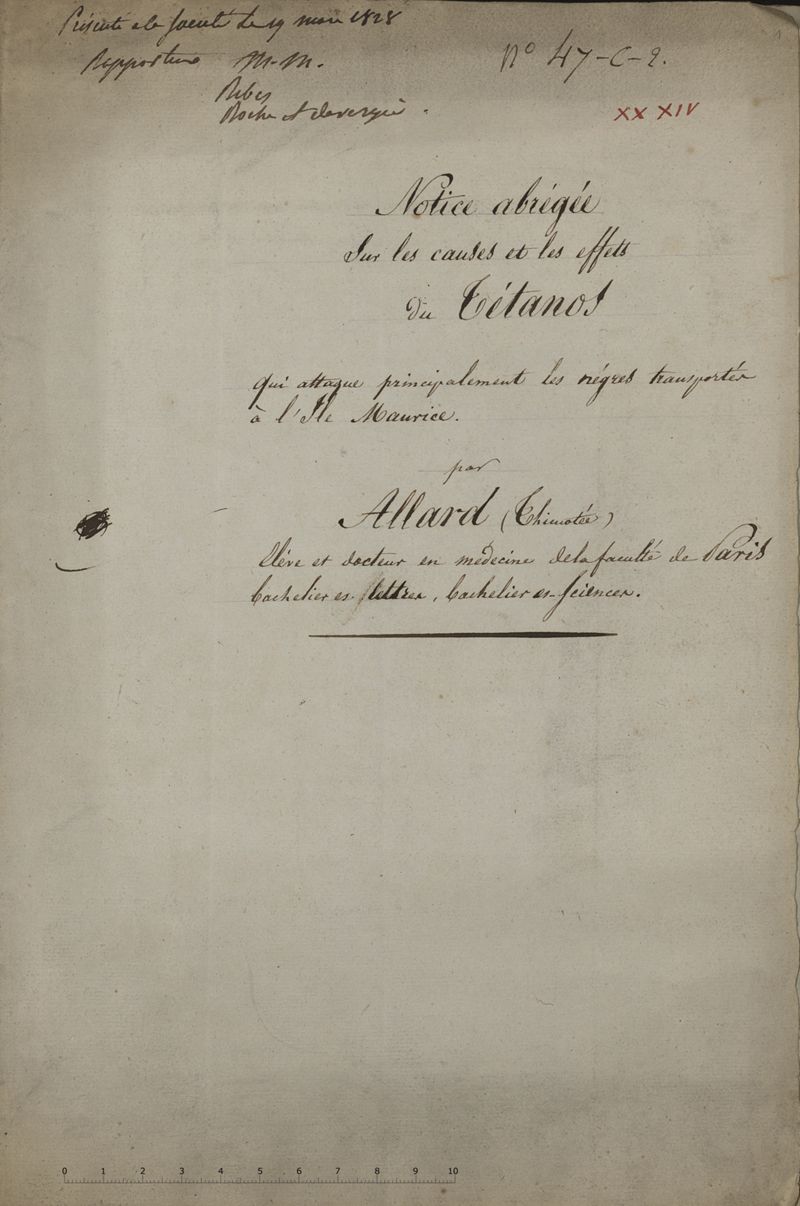 Présenté a la société le 19 mars 1828
Rapporteurs M.M.
Ribes
Roche et devergie.
N° 47-C-2.
XX XIV
Notice abrégée
Sur les causes et les effets
du Tétanos
qui attaque principalement les négres transportés
à l'Ile Maurice.
par
Allard (Thimotée)
Elève et docteur en medecine dela faculté de Paris
bachelier es-lettres, bachelier es-sciences.
0 1 2 3 4 5 6 7 8 9 10